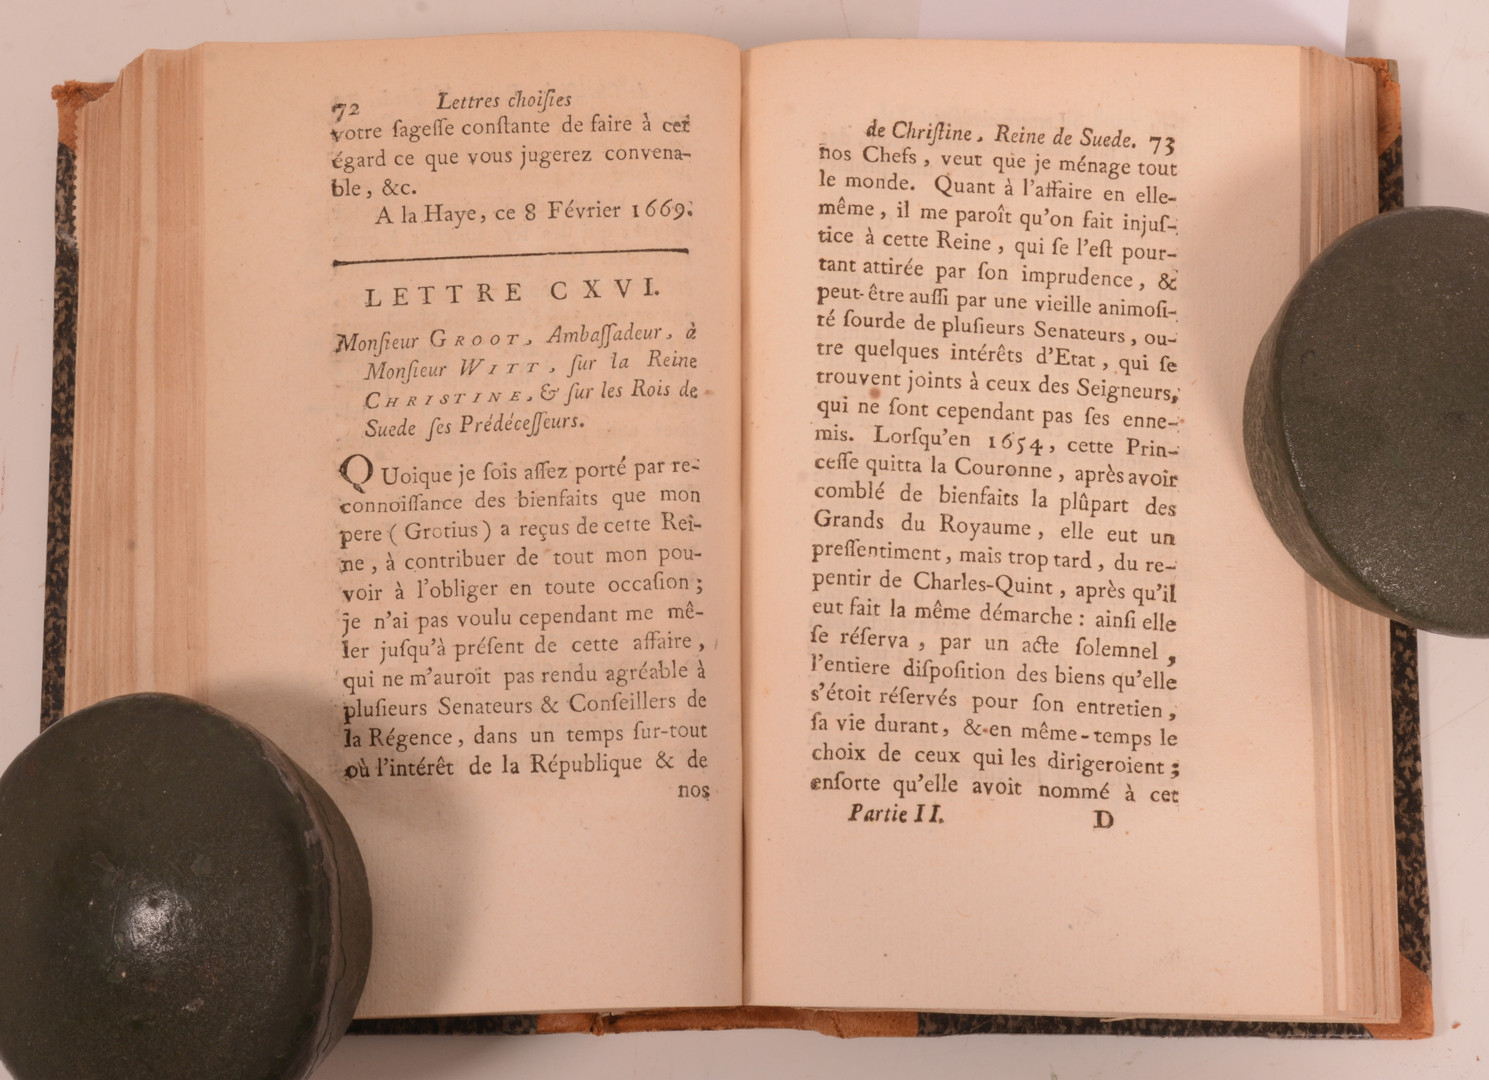 72 Lettres choiſies
votre ſageſſe conſtante de faire à cet
égard ce que vous jugerez convena-
ble, &c.
A la Haye, ce 8 Février 1669.
LETTRE CXVI.
Monſieur GROOT, Ambaſſadeur, à
Monſieur WITT, ſur la Reine
CHRISTINE, & ſur les Rois de
Suede ſes Prédéceſſeurs.
QUoique je ſois aſſez porté par re-
connoiſſance des bienfaits que mon
pere (Grotius) a reçus de cette Rei-
ne, à contribuer de tout mon pou-
voir à l'obliger en toute occaſion;
je n'ai pas voulu cependant me mê-
ler juſqu'à préſent de cette affaire,
qui ne m'auroit pas rendu agréable à
pluſieurs Senateurs & Conſeillers de
la Régence, dans un temps ſur-tout
où l'intérêt de la République & de
nos
de Chriſtine, Reine de Suede. 73
nos Chefs, veut que je ménage tout
le monde. Quant à l'affaire en elle-
même, il me paroît qu'on fait injuſ-
tice à cette Reine, qui ſe l'eſt pour-
tant attirée par ſon imprudence, &
peut-être auſſi par une vieille animoſi-
té ſourde de pluſieurs Senateurs, ou-
tre quelques intérêts d'Etat, qui ſe
trouvent joints à ceux des Seigneurs,
qui ne ſont cependant pas ſes enne-
mis. Lorſqu'en 1654, cette Prin-
ceſſe quitta la Couronne, après avoir
comblé de bienfaits la plûpart des
Grands du Royaume, elle eut un
preſſentiment, mais trop tard, du re-
pentir de Charles-Quint, après qu'il
eut fait la même démarche: ainſi elle
ſe réſerva, par un acte ſolemnel,
l'entiere diſpoſition des biens qu'elle
s'étoit réſervés pour ſon entretien,
ſa vie durant, & en même-temps le
choix de ceux qui les dirigeroient;
enſorte qu'elle avoit nommé à cet
Partie II. D